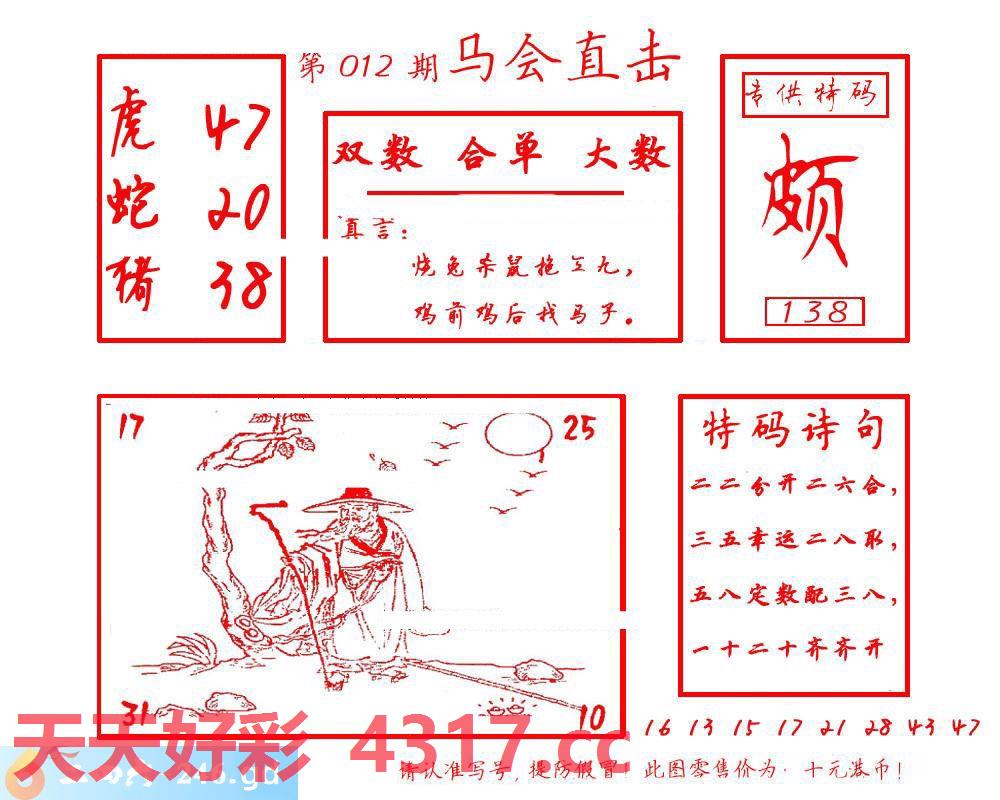 第 012 期 马会直击
虎 47
蛇 20
猪 38
双数 合单 大数
真言:
烧兔杀鼠拖三九,
鸡前鸡后找马子。
专供特码
颇
138
17
25
31
10
特码诗句
二二分开二六合,
三五幸运二八取,
五八定数配三八,
一十二十齐齐开
16 13 15 17 21 28 43 47
天天好彩 4317.cc
246.gd
请认准写号, 提防假冒! 此图零售价为· 十元港币!